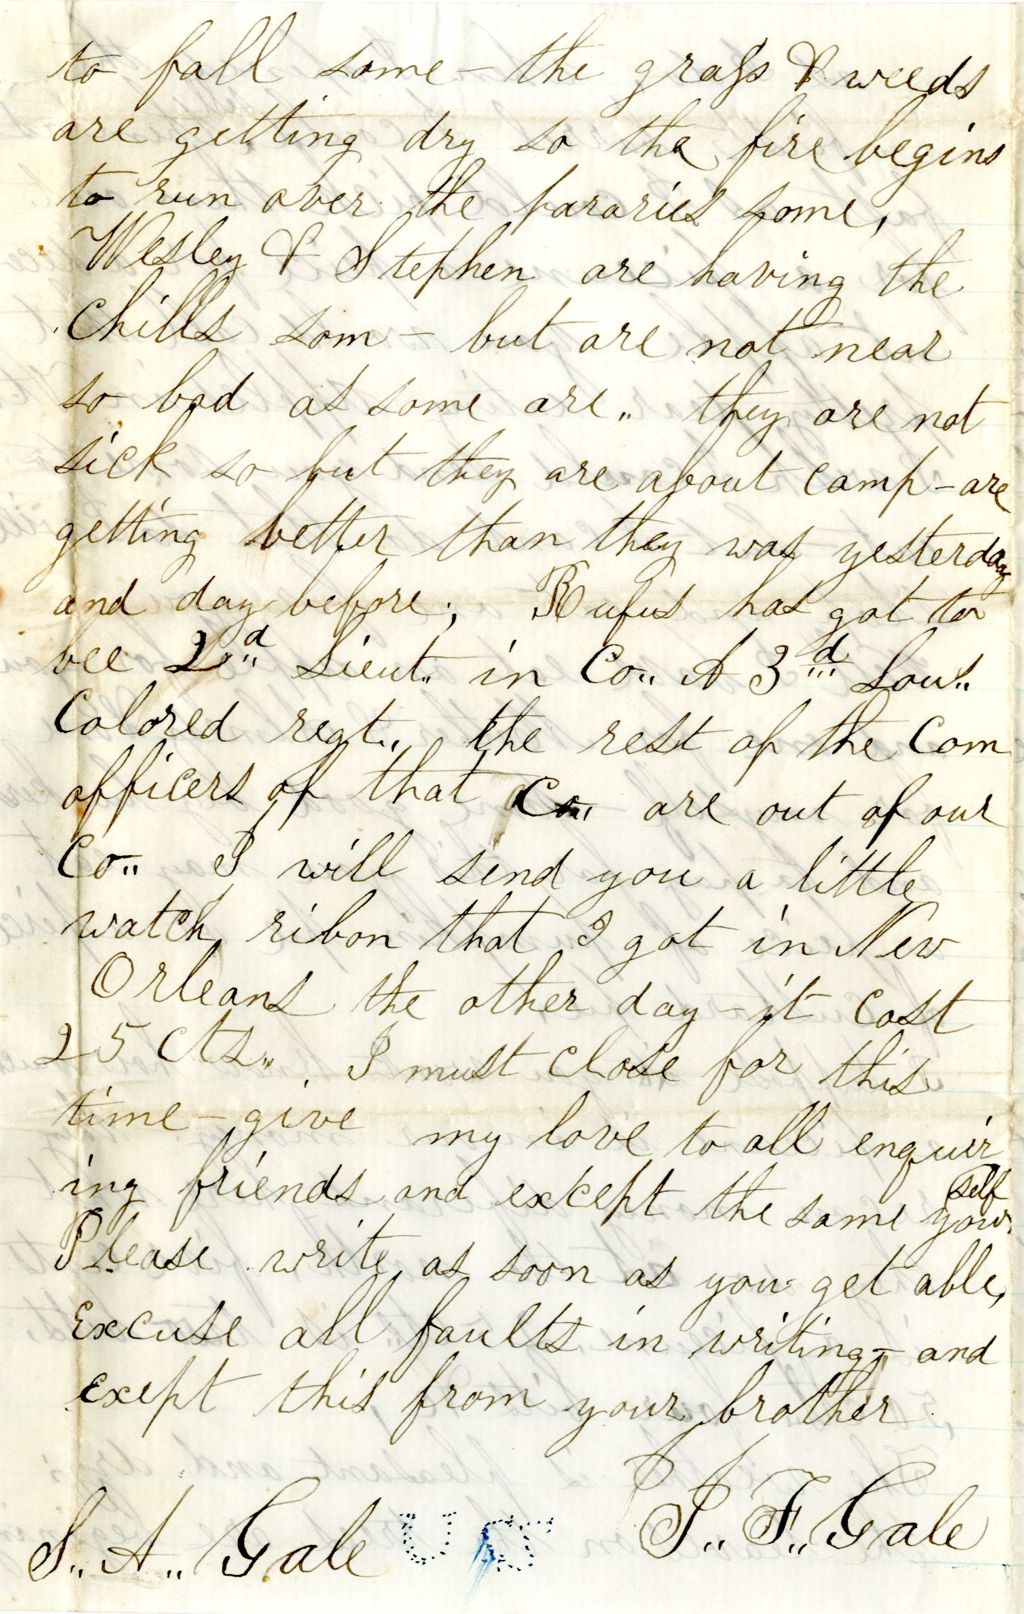 to fall some – the grass & weeds
are getting dry so the fire begins
to run over the pararies some,
Wesley & Stephen are having the
chills som – but are not near
so bad as some are,, they are not
sick so but they are about camp – are
getting better than they was yesterday
and day before; Rufus has got to
bee 2,,d Lieut,, in Co,, A 3,,,d Lou,,
Colored regt,, the rest of the Com
officers of that Co,, are out of our
Co,, I will send you a little
watch ribon that I got in New
Orleans the other day – it cost
25 cts,,. I must close for this
time – give my love to all enquir
ing friends and except the same your self
Please write as soon as you get able,
Excuse all faults in writing – and
exept this from your brother
S,, A,, Gale U S J,, F,, Gale